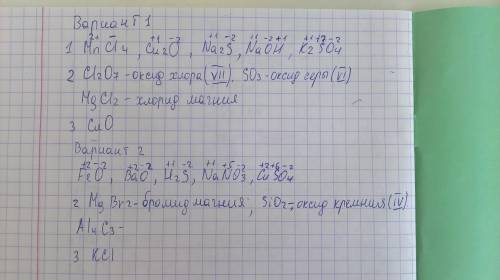 Вариант 1
1 Mn²⁺Cl⁻4, Cu⁺¹2O⁻², Na⁺¹2S⁻², Na⁺¹O⁻²H⁺¹, K⁺¹2SO⁻²4
2 Cl2O7 - оксид хлора (VII), SO3 - оксид серы (VI)
MgCl2 - хлорид магния
3 CuO
Вариант 2
Fe⁺²O⁻², Ba⁺²O⁻², H⁺¹2S⁻², Na⁺¹N⁺⁵O⁻²3, Cu⁺²S⁺⁶O⁻²4
2 MgBr2 - бромид магния, SiO2 - оксид кремния (IV)
Al4C3 -
3 KCl